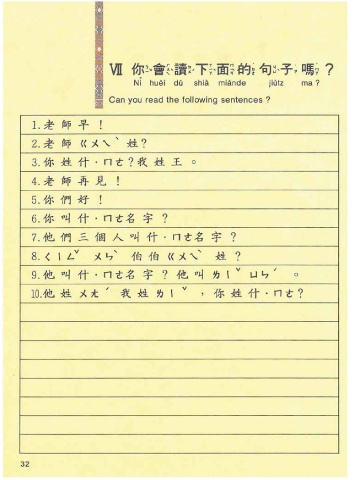 Ⅶ 你會讀下面的句子嗎？
Nǐ huèi dú shià miànde jiùtz ma?
Can you read the following sentences?
1.老師早！
2.老師ㄍㄨㄟˋ姓？
3.你姓什·ㄇㄜ？我姓王。
4.老師再見！
5.你們好！
6.你叫什·ㄇㄜ名字？
7.他們三個人叫什·ㄇㄜ名字？
8.ㄑㄧㄥˇ ㄨㄣˋ 伯伯ㄍㄨㄟˋ 姓？
9.他叫什·ㄇㄜ名字？他叫ㄌㄧˇ ㄩㄣˊ 。
10.他姓ㄨㄤˊ 我姓ㄌㄧˇ ，你姓什·ㄇㄜ？
32